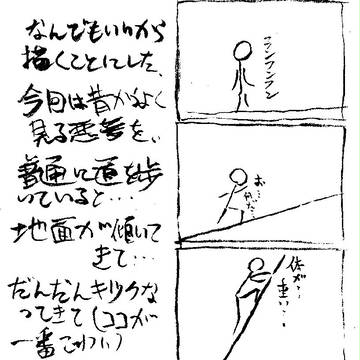 なんでもいいから
描くことにした、
今回は昔からよく
見る悪夢を、
普通に道を歩
いていると・・・
地面が傾いて
きて・・・
だんだんキツクな
ってきて(ココが
一番こわい)
フンフンフン
お・・・
体が・・・
重い・・・